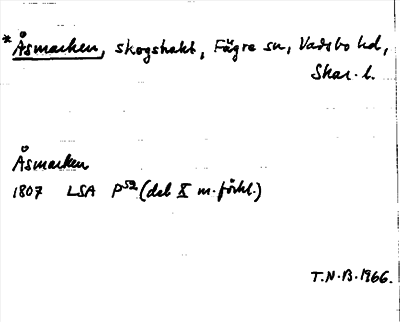 * Åsmarken, skogstrakt, Fägre sn, Vadsbo hd,
Skar. l.
Åsmarken
1807 LSA P52 (del X m. förkl.)
T.N.B. 1966.